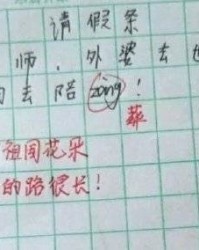 请假条
师，外婆去
去陪zàng！
葬
祖国花朵
的路很长！